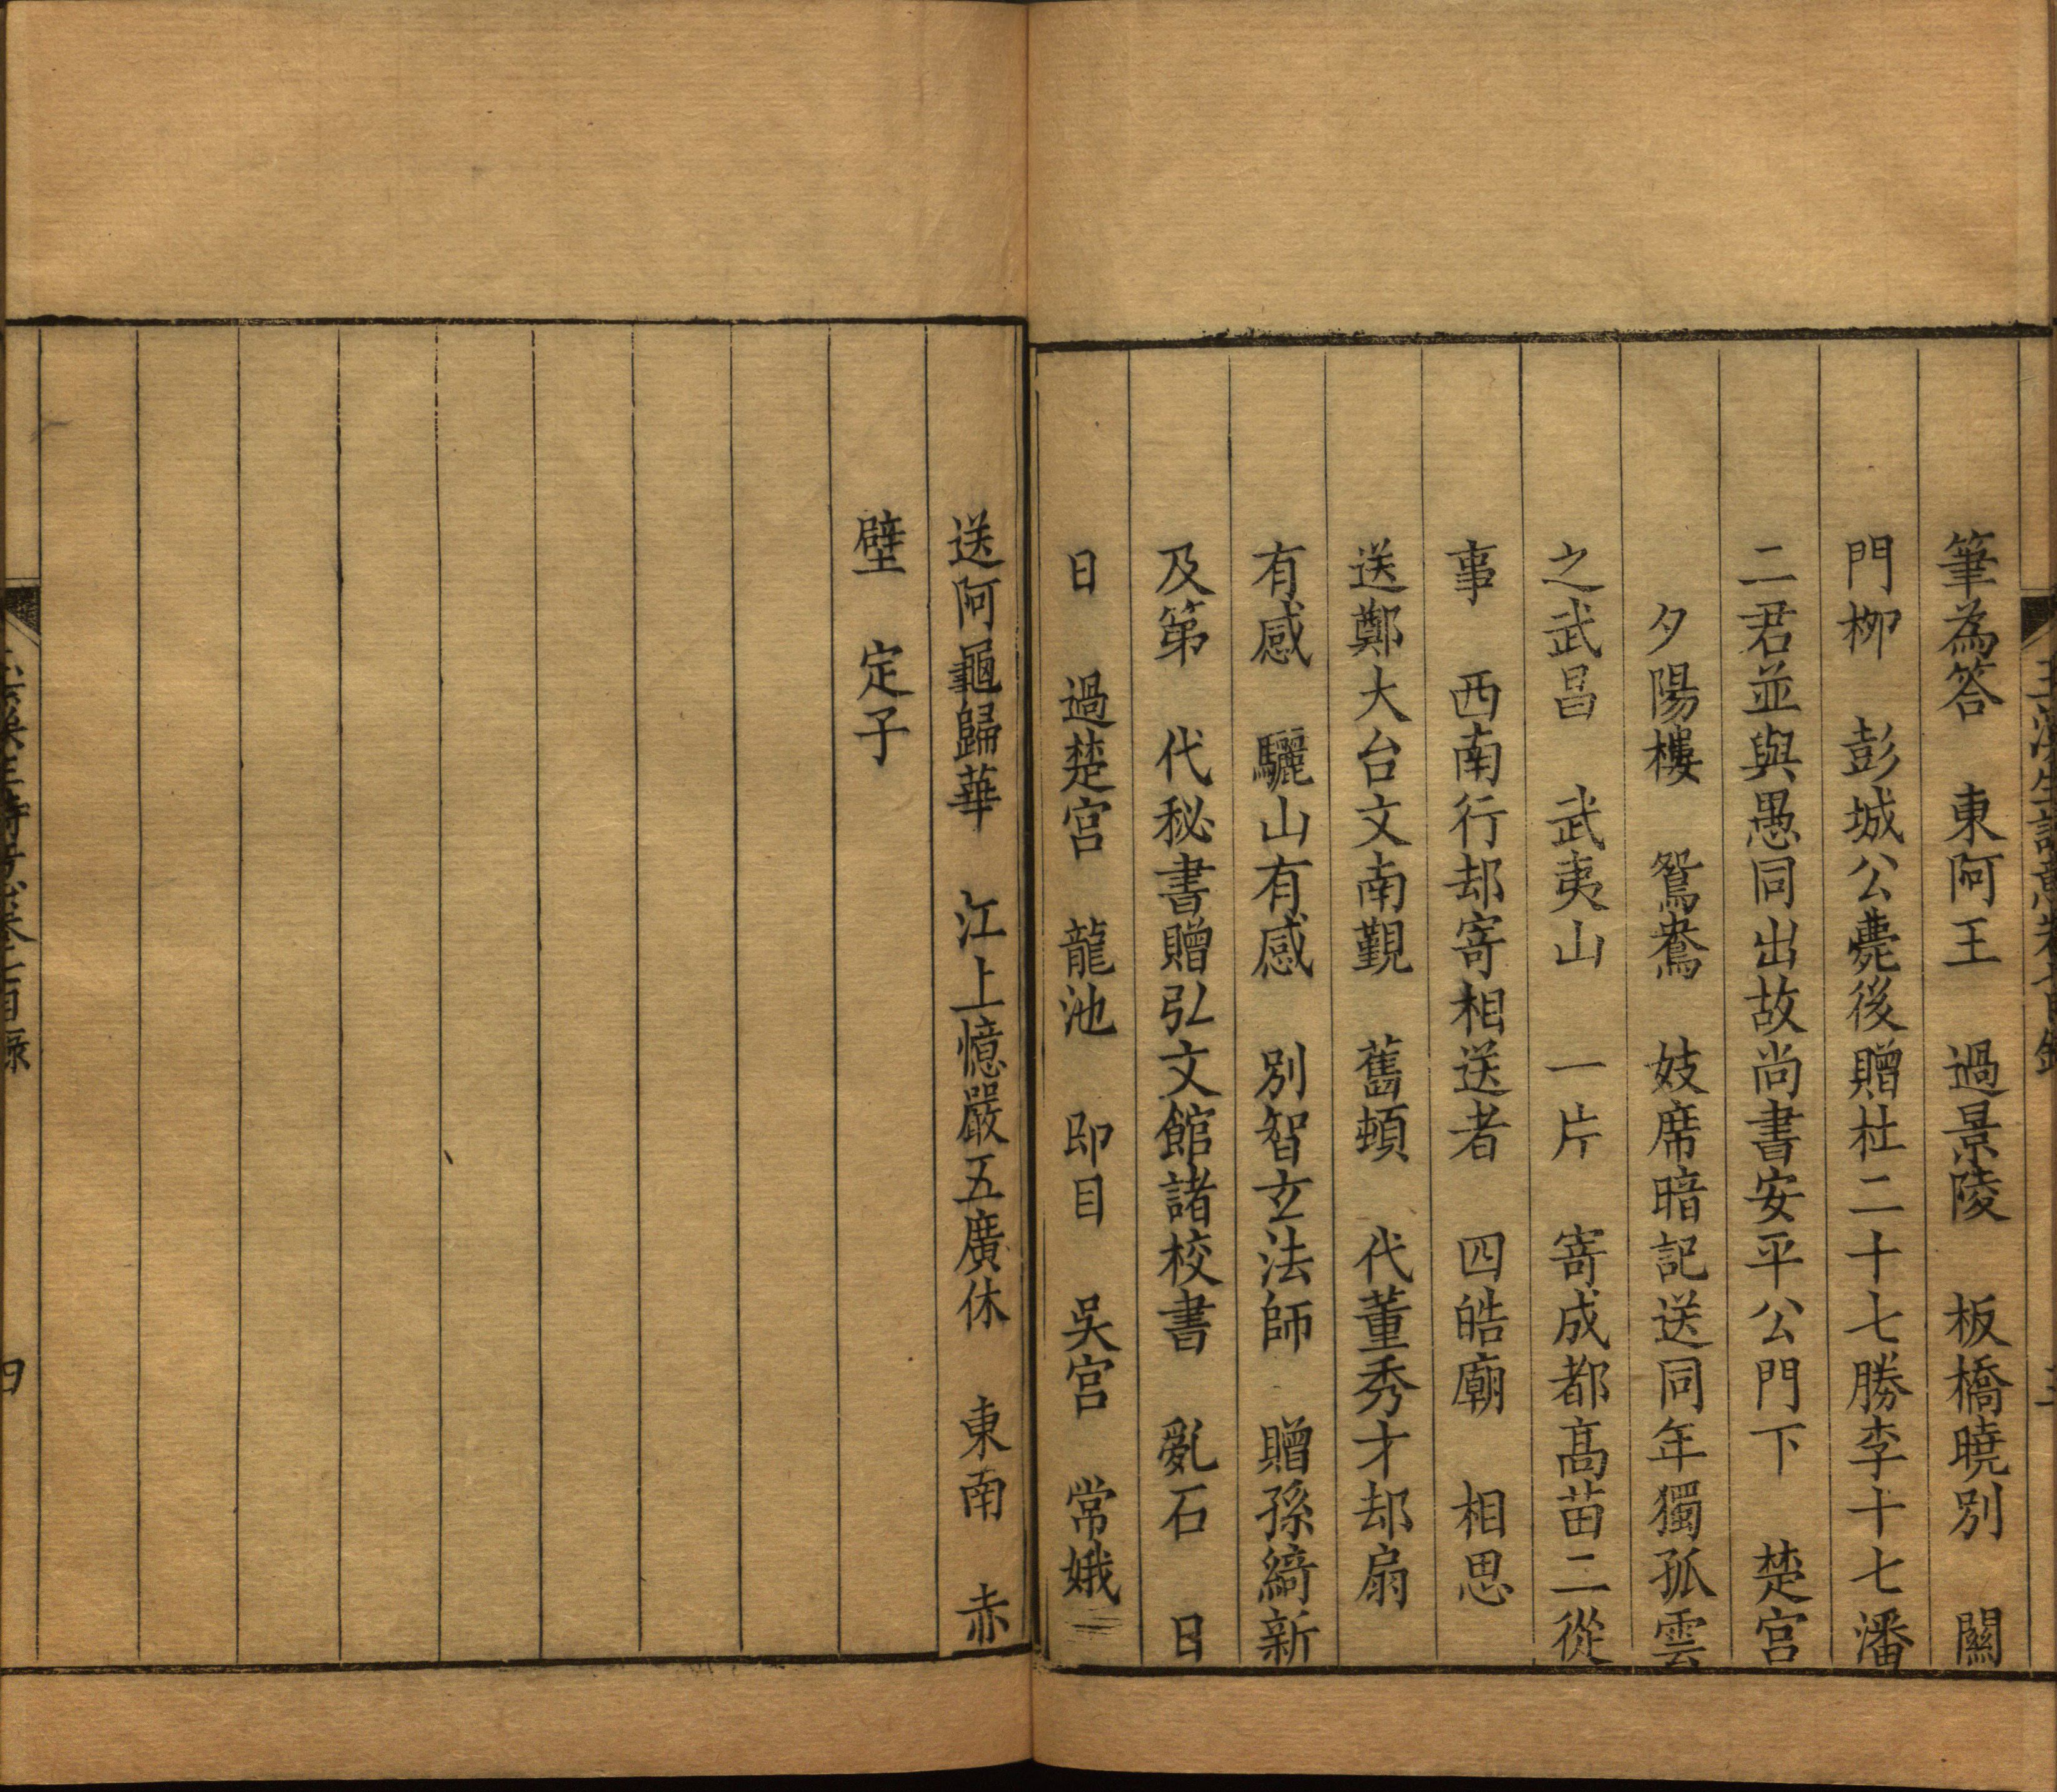 筆為答　東阿王　過景陵　板橋曉別　關
門柳　彭城公薨後贈杜二十七勝李十七潘
二君並與愚同出故尚書安平公門下　楚宮
夕陽樓　鴛鴦　妓席暗記送同年獨孤雲
之武昌　武夷山　一片　寄成都高苗二從
事　西南行却寄相送者　四皓廟　相思
送鄭大台文南覲　舊頓　代董秀才却扇
有感　驪山有感　別智玄法師　贈孫綺新
及第　代秘書贈弘文館諸校書　亂石　日
日　過楚宮　龍池　即目　吳宮　常娥
送阿龜歸華　江上憶嚴五廣休　東南　赤
壁　定子